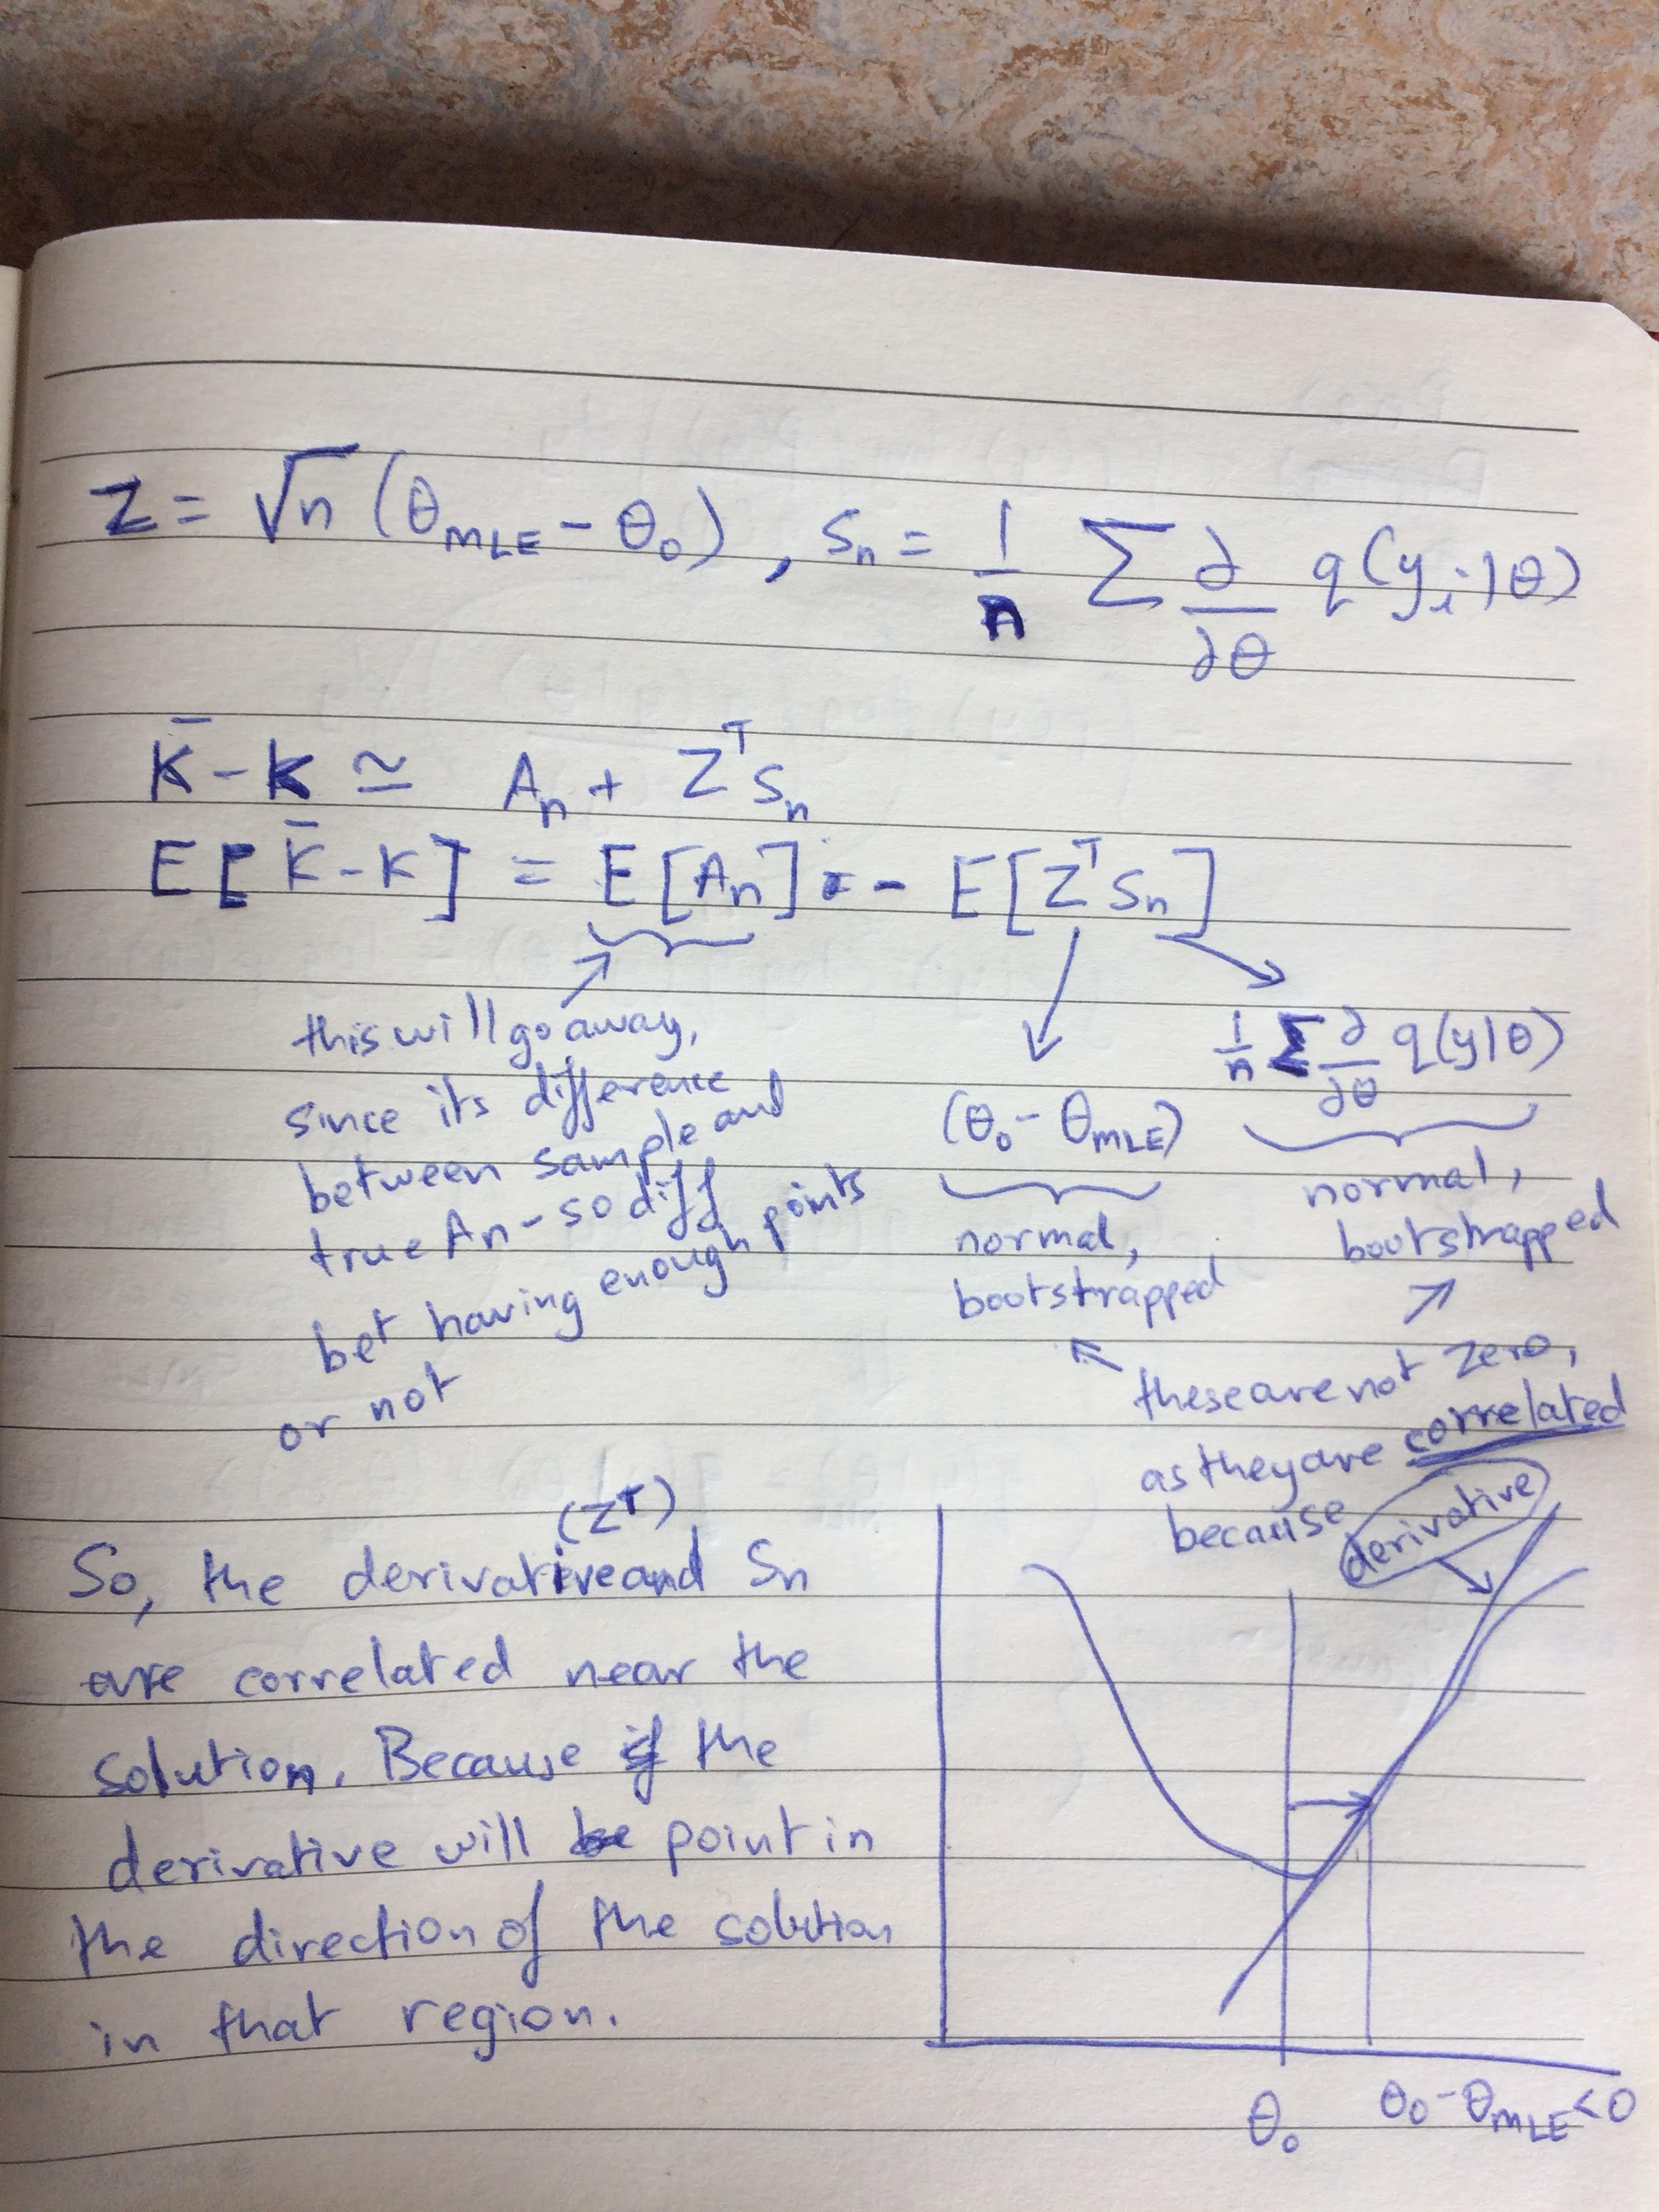 Z = √n (θ_MLE - θ₀), Sₙ = 1/n Σ ∂/∂θ q(yᵢ|θ)
K̄ - K ≃ Aₙ + Zᵀ Sₙ
E[K̄ - K] = E[Aₙ] - E[Zᵀ Sₙ]
this will go away,
since its difference
between sample and
true An - so diff
bet having enough points
or not
(θ₀ - θ_MLE)
normal,
bootstrapped
1/n Σ ∂/∂θ q(y|θ)
normal,
bootstrapped
these are not zero,
as they are correlated
because derivative
(Zᵀ)
So, the derivative and Sn
are correlated near the
solution. Because if the
derivative will point in
the direction of the solution
in that region.
θ₀
θ₀ - θ_MLE < 0